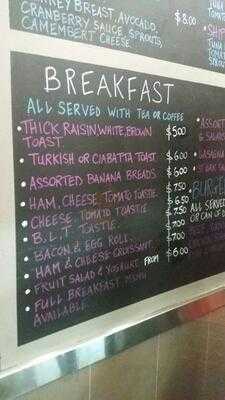 TURKEY BREAST, AVOCADO,
CRANBERRY SAUCE, SPROUTS,
CAMEMBERT CHEESE.
$8.00
TUNA
TOMAT
BREAKFAST
ALL SERVED WITH TEA OR COFFEE
• THICK RAISIN, WHITE, BROWN $5.00
TOAST
• TURKISH OR CIABATTA TOAST $6.00
• ASSORTED BANANA BREADS $6.00
• HAM, CHEESE, TOMATO TOASTIE. $7.50
• CHEESE, TOMATO TOASTIE $6.50
• B.L.T. TOASTIE. $7.50
• BACON & EGG ROLL. $7.00
• HAM & CHEESE CROISSANT. $7.00
• FRUIT SALAD & YOGHURT FROM $6.00
• FULL BREAKFAST MENU
AVAILABLE.
• ASSORT
& SALAD
• LASAGNA
BURGE
ALL SERVE
OR CAN OF D